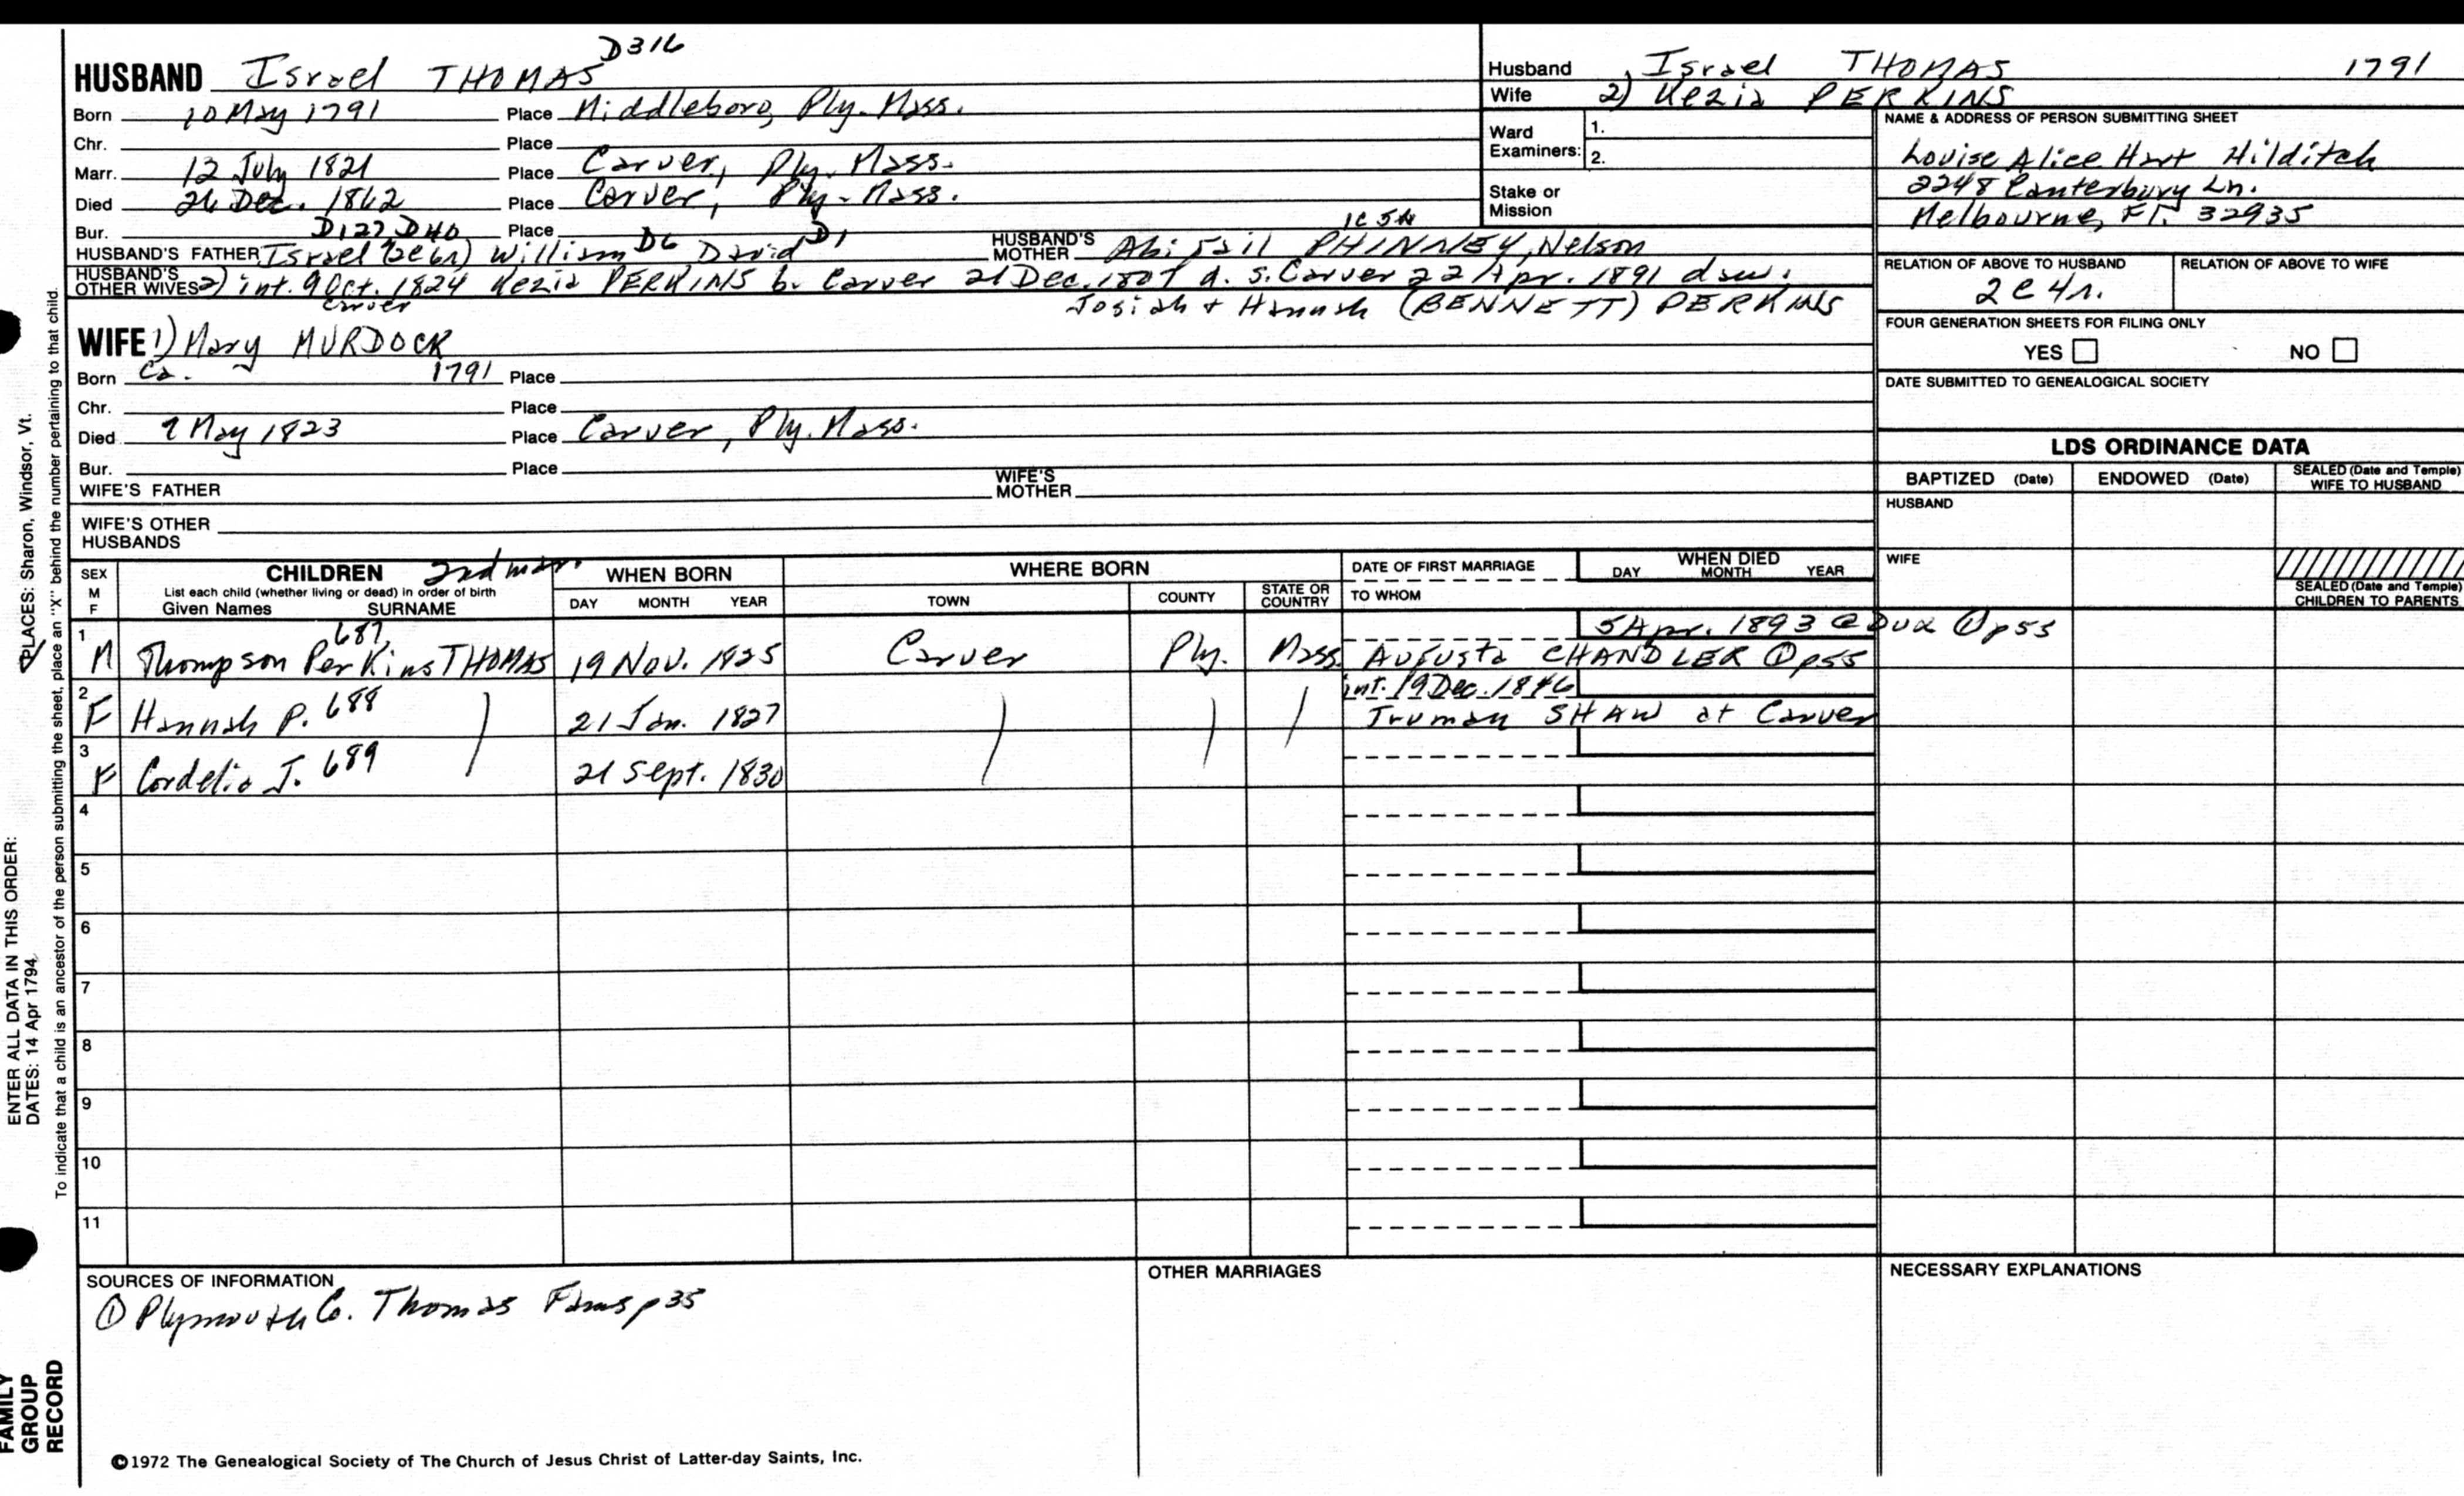 D316
HUSBAND Israel THOMAS
Born 10 May 1791 Place Middleboro, Ply. Mass.
Chr. Place
Marr. 12 July 1821 Place Carver, Ply. Mass.
Died 26 Dec. 1862 Place Carver, Ply. Mass.
Bur. Place
D127 D40 D6 D1 1C5N
HUSBAND'S FATHER Israel William David HUSBAND'S MOTHER Abigail PHINNEY, Nelson
HUSBAND'S OTHER WIVES 2) int. 9 Oct. 1824 Kezia PERKINS b. Carver 21 Dec. 1807 d. S. Carver 22 Apr. 1891 dau.
Carver Josiah + Hannah (BENNETT) PERKINS
WIFE 1) Mary MURDOCK
Born Ca. 1791 Place
Chr. Place
Died 9 May 1823 Place Carver, Ply. Mass.
Bur. Place
WIFE'S FATHER WIFE'S MOTHER
WIFE'S OTHER HUSBANDS
Husband Israel THOMAS 1791
Wife 2) Kezia PERKINS
Ward Examiners: 1.
2.
Stake or Mission
NAME & ADDRESS OF PERSON SUBMITTING SHEET
Louise Alice Hart Hilditch
2248 Canterbury Ln.
Melbourne, Fl. 32935
RELATION OF ABOVE TO HUSBAND RELATION OF ABOVE TO WIFE
2C4r.
FOUR GENERATION SHEETS FOR FILING ONLY
YES NO
DATE SUBMITTED TO GENEALOGICAL SOCIETY
LDS ORDINANCE DATA
BAPTIZED (Date) ENDOWED (Date) SEALED (Date and Temple) WIFE TO HUSBAND
HUSBAND
WIFE
SEALED (Date and Temple) CHILDREN TO PARENTS
SEX M F
CHILDREN 2nd mar.
List each child (whether living or dead) in order of birth
Given Names SURNAME
WHEN BORN
DAY MONTH YEAR
WHERE BORN
TOWN COUNTY STATE OR COUNTRY
DATE OF FIRST MARRIAGE
TO WHOM
WHEN DIED
DAY MONTH YEAR
687 5 Apr. 1893 @ Dux ① p55
1 M Thompson Perkins THOMAS 19 Nov. 1825 Carver Ply. Mass. Augusta CHANDLER ① p55
int. 19 Dec. 1846
2 F Hannah P. 688 21 Jan. 1827 Truman SHAW at Carver
3 F Cordelia J. 689 21 Sept. 1830
4
5
6
7
8
9
10
11
SOURCES OF INFORMATION
① Plymouth Co. Thomas Fams p 35
OTHER MARRIAGES
NECESSARY EXPLANATIONS
©1972 The Genealogical Society of The Church of Jesus Christ of Latter-day Saints, Inc.
PLACES: Sharon, Windsor, Vt.
ENTER ALL DATA IN THIS ORDER:
DATES: 14 Apr 1794
To indicate that a child is an ancestor of the person submitting the sheet, place an "X" behind the number pertaining to that child.
FAMILY
GROUP
RECORD